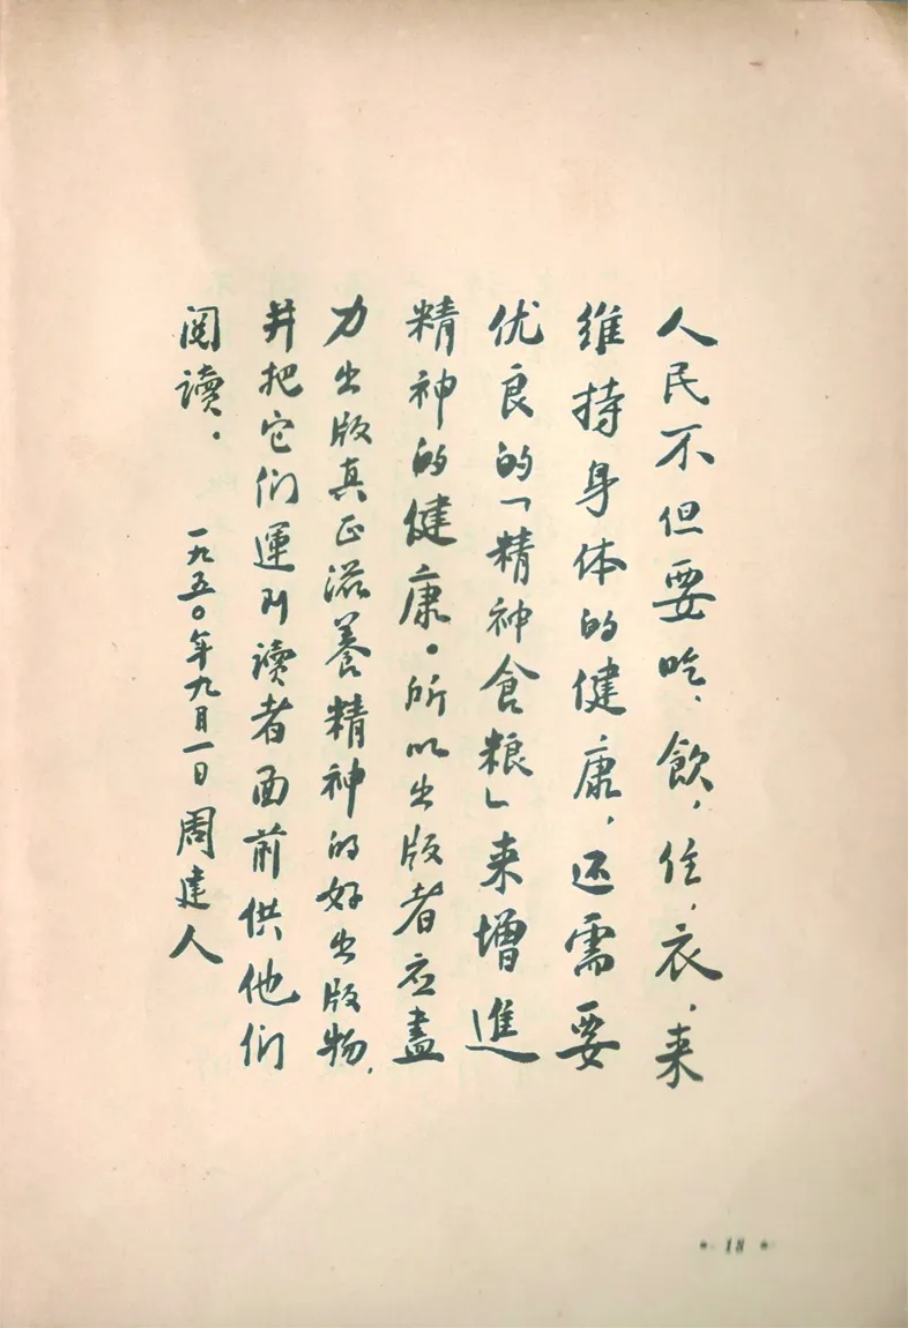 人民不但要吃、飲、住、衣、来
维持身体的健康，还需要
优良的「精神食粮」来增進
精神的健康。所以出版者应盡
力出版真正滋養精神的好出版物，
并把它们運到讀者面前供他们
阅讀．
一九五〇年九月一日 周建人
• 18 •